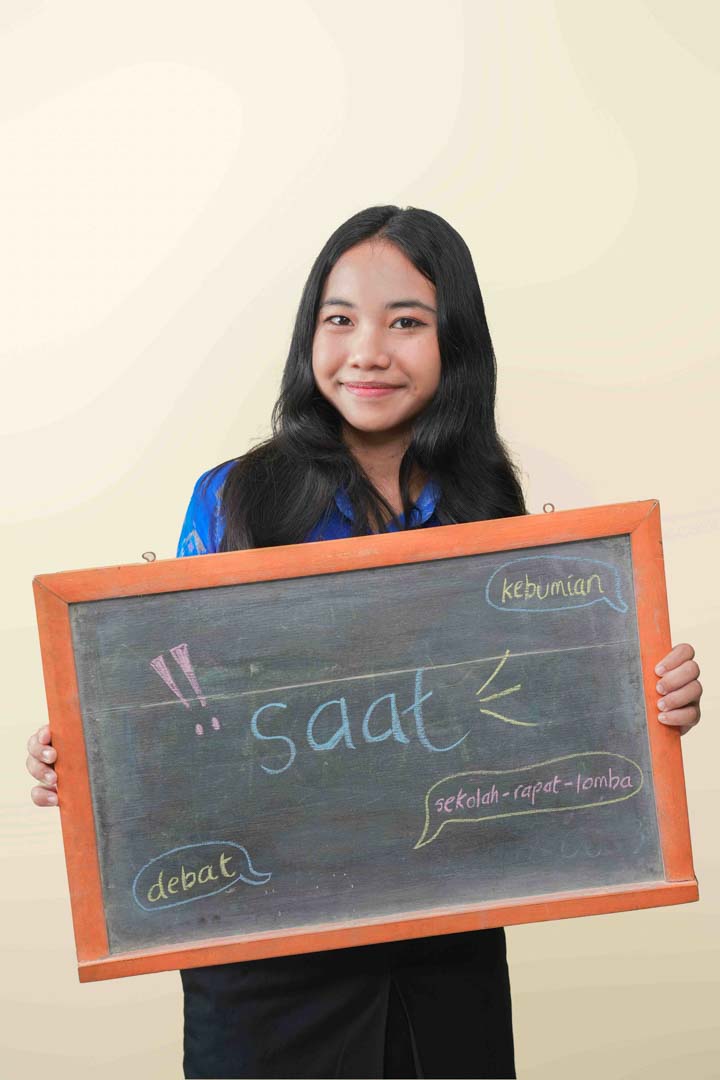 kebumian
!! saat
sekolah-rapat-lomba
debat